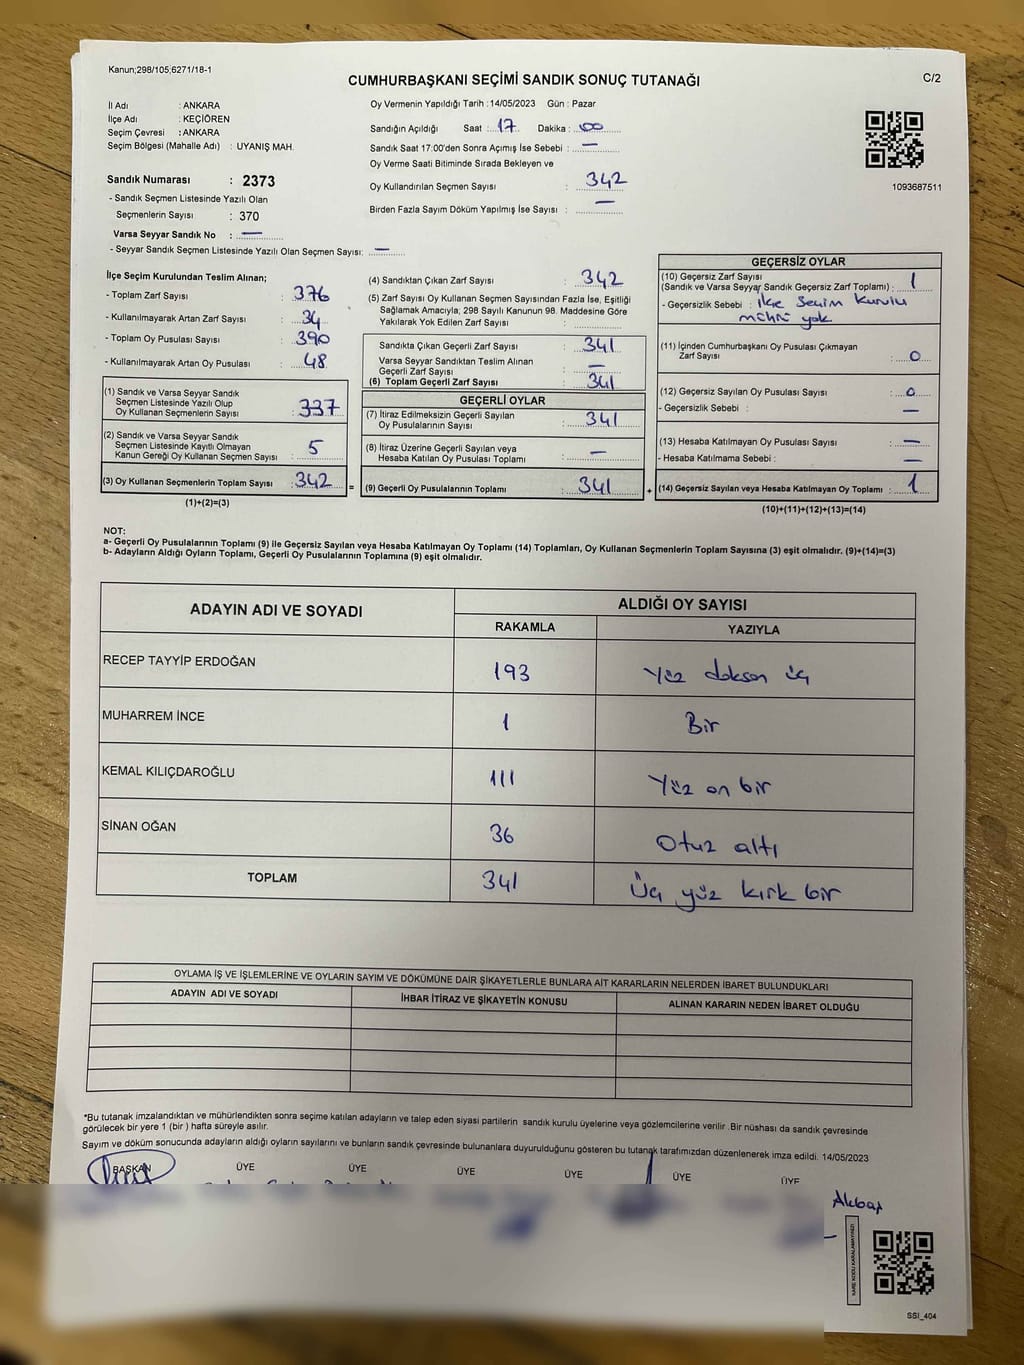 Kanun;298/105,6271/18-1
CUMHURBAŞKANI SEÇİMİ SANDIK SONUÇ TUTANAĞI
C/2
İl Adı : ANKARA
İlçe Adı : KEÇİÖREN
Seçim Çevresi : ANKARA
Seçim Bölgesi (Mahalle Adı) : UYANIŞ MAH.
Sandık Numarası : 2373
- Sandık Seçmen Listesinde Yazılı Olan
Seçmenlerin Sayısı : 370
Varsa Seyyar Sandık No : —
- Seyyar Sandık Seçmen Listesinde Yazılı Olan Seçmen Sayısı: —
Oy Vermenin Yapıldığı Tarih : 14/05/2023 Gün : Pazar
Sandığın Açıldığı Saat : 17 Dakika : 00
Sandık Saat 17:00'den Sonra Açımış İse Sebebi : —
Oy Verme Saati Bitiminde Sırada Bekleyen ve
Oy Kullandırılan Seçmen Sayısı : 342
Birden Fazla Sayım Döküm Yapılmış İse Sayısı : —
1093687511
İlçe Seçim Kurulundan Teslim Alınan;
- Toplam Zarf Sayısı : 376
- Kullanılmayarak Artan Zarf Sayısı : 34
- Toplam Oy Pusulası Sayısı : 390
- Kullanılmayarak Artan Oy Pusulası : 48
(1) Sandık ve Varsa Seyyar Sandık
Seçmen Listesinde Yazılı Olup
Oy Kullanan Seçmenlerin Sayısı : 337
(2) Sandık ve Varsa Seyyar Sandık
Seçmen Listesinde Kayıtlı Olmayan
Kanun Gereği Oy Kullanan Seçmen Sayısı : 5
(3) Oy Kullanan Seçmenlerin Toplam Sayısı : 342
(1)+(2)=(3)
=
(4) Sandıktan Çıkan Zarf Sayısı : 342
(5) Zarf Sayısı Oy Kullanan Seçmen Sayısından Fazla İse, Eşitliği
Sağlamak Amacıyla; 298 Sayılı Kanunun 98. Maddesine Göre
Yakılarak Yok Edilen Zarf Sayısı :
Sandıkta Çıkan Geçerli Zarf Sayısı : 341
Varsa Seyyar Sandıktan Teslim Alınan
Geçerli Zarf Sayısı : —
(6) Toplam Geçerli Zarf Sayısı : 341
GEÇERLİ OYLAR
(7) İtiraz Edilmeksizin Geçerli Sayılan
Oy Pusulalarının Sayısı : 341
(8) İtiraz Üzerine Geçerli Sayılan veya
Hesaba Katılan Oy Pusulası Toplamı : —
(9) Geçerli Oy Pusulalarının Toplamı : 341
+
GEÇERSİZ OYLAR
(10) Geçersiz Zarf Sayısı
(Sandık ve Varsa Seyyar Sandık Geçersiz Zarf Toplamı) : 1
- Geçersizlik Sebebi : ilçe Seçim Kurulu
mührü yok
(11) İçinden Cumhurbaşkanı Oy Pusulası Çıkmayan
Zarf Sayısı : 0
(12) Geçersiz Sayılan Oy Pusulası Sayısı : 0
- Geçersizlik Sebebi : —
(13) Hesaba Katılmayan Oy Pusulası Sayısı : —
- Hesaba Katılmama Sebebi : —
(14) Geçersiz Sayılan veya Hesaba Katılmayan Oy Toplamı : 1
(10)+(11)+(12)+(13)=(14)
NOT:
a- Geçerli Oy Pusulalarının Toplamı (9) ile Geçersiz Sayılan veya Hesaba Katılmayan Oy Toplamı (14) Toplamları, Oy Kullanan Seçmenlerin Toplam Sayısına (3) eşit olmalıdır. (9)+(14)=(3)
b- Adayların Aldığı Oyların Toplamı, Geçerli Oy Pusulalarının Toplamına (9) eşit olmalıdır.
ADAYIN ADI VE SOYADI ALDIĞI OY SAYISI
RAKAMLA YAZIYLA
RECEP TAYYİP ERDOĞAN 193 Yüz doksan üç
MUHARREM İNCE 1 Bir
KEMAL KILIÇDAROĞLU 111 Yüz on bir
SİNAN OĞAN 36 Otuz altı
TOPLAM 341 Üç yüz kırk bir
OYLAMA İŞ VE İŞLEMLERİNE VE OYLARIN SAYIM VE DÖKÜMÜNE DAİR ŞİKAYETLERLE BUNLARA AİT KARARLARIN NELERDEN İBARET BULUNDUKLARI
ADAYIN ADI VE SOYADI İHBAR İTİRAZ VE ŞİKAYETİN KONUSU ALINAN KARARIN NEDEN İBARET OLDUĞU
*Bu tutanak imzalandıktan ve mühürlendikten sonra seçime katılan adayların ve talep eden siyasi partilerin sandık kurulu üyelerine veya gözlemcilerine verilir .Bir nüshası da sandık çevresinde
görülecek bir yere 1 (bir ) hafta süreyle asılır.
Sayım ve döküm sonucunda adayların aldığı oyların sayılarını ve bunların sandık çevresinde bulunanlara duyurulduğunu gösteren bu tutanak tarafımızdan düzenlenerek imza edildi. 14/05/2023
BAŞKAN ÜYE ÜYE ÜYE ÜYE ÜYE ÜYE
Akbaş
KARE KODU KARALAMAYINIZ!
SSI_404